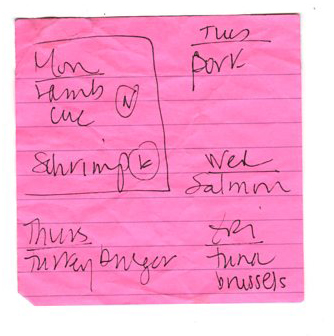 Mon
Lamb
cuc
N
Schrimp K
Tues
pork
Wed
Salmon
Thurs
Turkey Burger
Fri
tuna
brussels